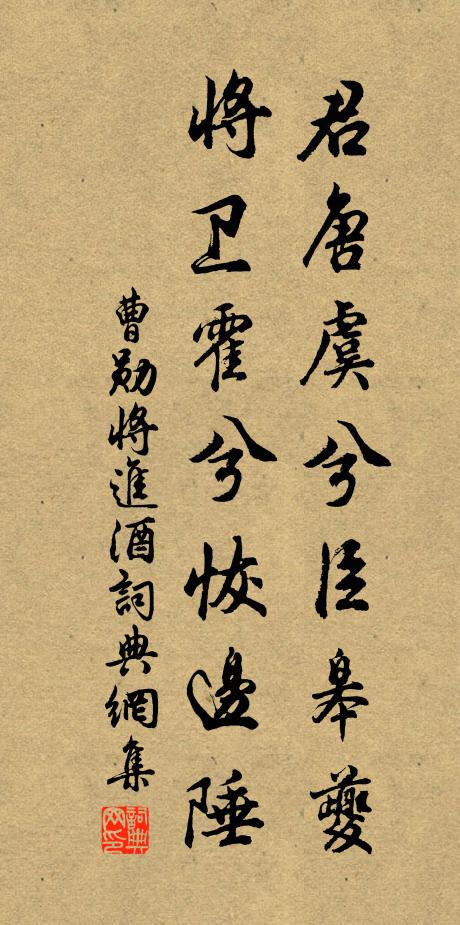 君唐虞兮臣皋夔
将卫霍兮恢邊陲
曹勛将進酒詞典網集
詞典网印